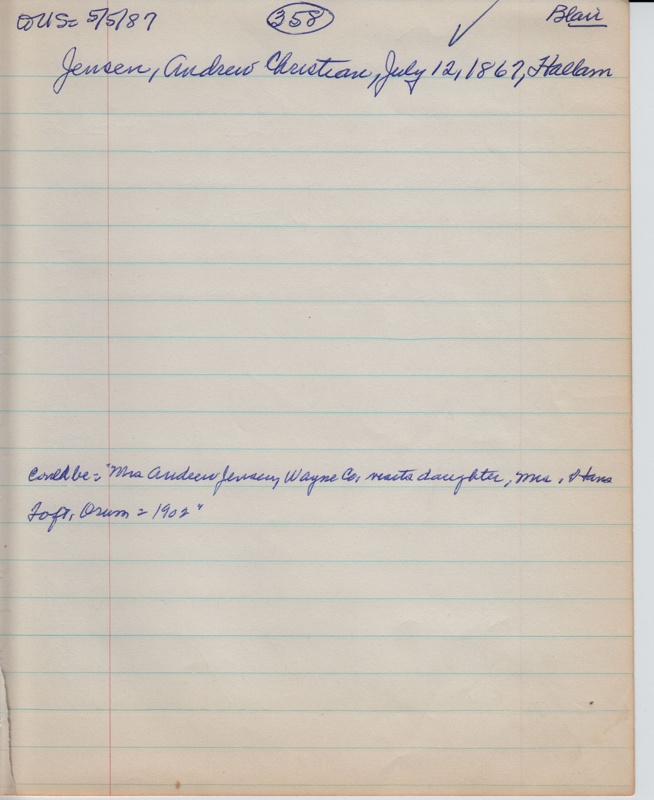 OUS= 5/5/87 358 Blair
Jensen, Andrew Christian, July 12, 1867, Hallam
Could be = "Mrs Andrew Jensen, Wayne Co, visits daughter, Mrs. Hans
Toft, Orum = 1902"